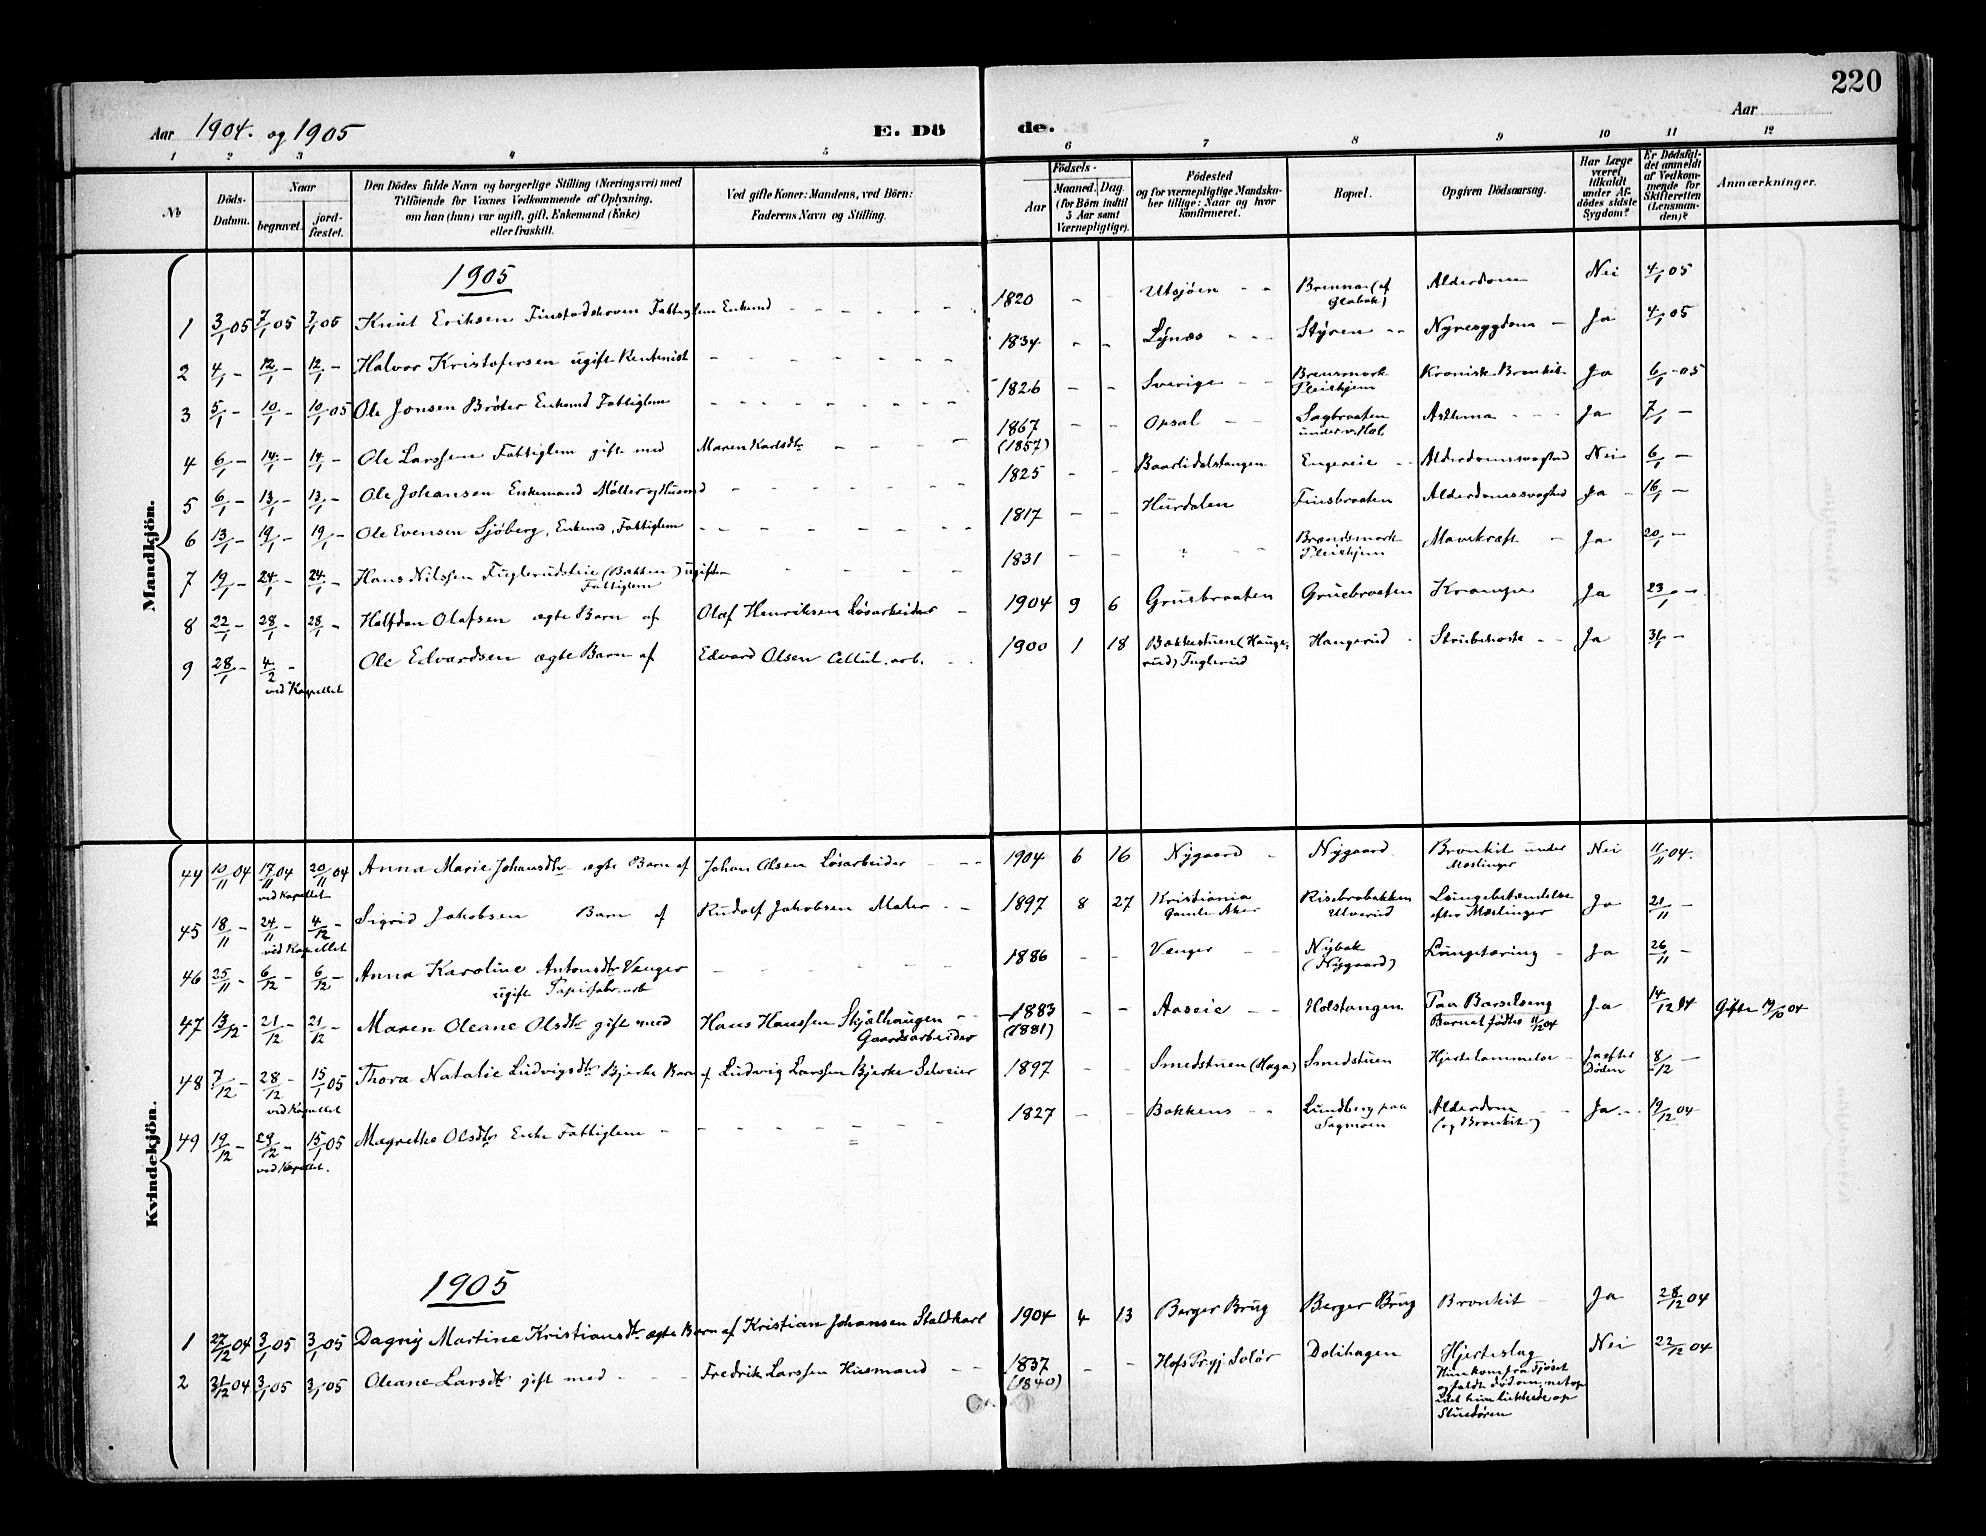 220
Aar 1904. og 1905
E. Dö
de.
Aar
1 2 3 4 5 6 7 8 9 10 11 12
№
Döds-Datum.
Naar
begravet.
jord-fæstet.
Den Dödes fulde Navn og borgerlige Stilling (Næringsvei) med
Tilföiende for Voxnes Vedkommende af Oplysning,
om han (hun) var ugift, gift, Enkemand (Enke)
eller fraskilt.
Ved gifte Koner: Mandens, ved Börn:
Faderens Navn og Stilling.
Födsels-
Aar
Maaned. Dag.
(for Börn indtil
5 Aar samt
Værnepligtige).
Födested
og for værnepligtige Mandskaber tillige: Naar og hvor
konfirmeret.
Bopæl.
Opgiven Dödsaarsag.
Har Læge
været
tilkaldt
under Afdödes sidste
Sygdom?
Er Dödsfaldet anmeldt
af Vedkommende for
Skifteretten
(Lensmanden)?
Anmærkninger.
Mandkjön.
1905
1 3/1 05 7/1 05 7/1 05 Knut Eriksen Finstadskoven Fattiglem Enkemd - - 1820 - - Utsjöen - - Brennar (af Alderdom Nei 4/1 05
2 4/1 - 12/1 - 12/1 - Halvor Kristofersen ugift Rentenist - - 1834 - - Lynæs - - Styren - - Nyresygdom - Ja 4/1 05
3 5/1 - 10/1 - 10/1 05 Ole Jonsen Bröter Enkemd Fattiglem - - 1826 - - Sverige - - Brensmork Pleiehjem Kronisk Bronkit Ja 6/1 - 05
4 6/1 - 14/1 - 14/1 - Ole Larssen Fattiglem gift med Maren Karlsdtr - - 1867 (1857) - - Opsal - - Sagbraaten Asthma - - Ja 7/1 -
5 6/1 - 13/1 - 13/1 - Ole Johansen Enkemand Möller og Husmd - - 1825 - - Baarlidalstangen Engereie - - Alderdomssvaghed Nei 6/1 -
6 13/1 - 19/1 - 19/1 - Ole Evensen Sjöberg, Enkemd, Fattiglem - - 1817 - - Hurdalen Finsbraaten Alderdomssvaghed Ja - 16/1 -
7 19/1 - 24/1 - 24/1 - Hans Nilssen Fuglerudeie (Bakken) ugift - - 1831 - - " - - Brensmork Pleiehjem Mavekræft - Ja 20/1 -
Fattiglem
8 22/1 - 28/1 - 28/1 - Halfdan Olafsen ægte Barn af Olaf Henriksen Lösarbeider - 1904 9 6 Gruebraaten Gruebraaten Krampe Ja 23/1 -
9 28/1 - 4/2 - Ole Edvardsen ægte Barn af Edvard Olsen Cellul. arb. - 1900 1 18 Bakkestuen (Haugerud) Fuglerud Haugerud - Strubehoste - - Ja 31/1 -
ved Kapellet
Kvindekjön.
44 10/11 04 17/11 04 20/11 04 Anna Marie Johansdtr ægte Barn af Johan Olsen Lösarbeider - - 1904 6 16 Nygaard - Nygaard Bronkit under Mæslinger Nei 11/11 04.
ved Kapellet
45 18/11 - 24/11 - 4/12 - Sigrid Jakobsen Barn af Rudolf Jakobsen Maler - - 1897 8 27 Kristiania Gamle Aker Risebrobakken Ulverud Lungebetændelse efter Mæslinger Ja 21/11 -
ved Kapellet
46 25/11 - 6/12 - 6/12 - Anna Karoline Antonsdtr Venger - - 1886 - - Venger - - Nybak (Nygaard) Lungetæring - Ja 26/11 -
ugift Papirfabr. arb
47 13/12 - 21/12 - 21/12 - Maren Oleane Olsdtr gift med Hans Hanssen Skjalhaugen - - 1883 (1881) - - Aaseie - - Holstangen Paa Barselseng Barnet födtes 11/12 04 Ja 14/12 04 Gifte 19/10 04
Gaardsarbeider
48 7/12 - 28/12 - 15/1 05 Thora Natalie Ludvigsdtr Bjerke Barn af Ludvig Larssen Bjerke Selveier 1897 - - Smedstuen (Haga) Smedstuen Hjertelammelse - Ja efter Döden 8/12 -
ved Kapellet
49 19/12 - 29/12 - 15/1 05 Magrethe Olsdtr Enke Fattiglem - - 1827 - - Bakkens - - Lundberg paa Sagmoen Alderdom (og Bronkit) - - Ja - - 19/12 04
ved Kapellet.
1905
1 27/12 04 3/1 05 3/1 05 Dagny Martine Kristiansdtr ægte Barn af Kristian Johansen Staldkarl 1904 4 13 Berger Brug Berger Brug Bronkit - Ja 28/12 04
2 21/12 04 3/1 05 3/1 05 Oleane Larsdtr gift med - - - Fredrik Larssen Husmand - - 1837 (1840) - - Hofs Prgj. Solör Dolihagen Hjerteslag Nei 22/12 04
Hun kom fra Fjöset
og faldt död om, netop
idet hun lukkede op
Stuedören